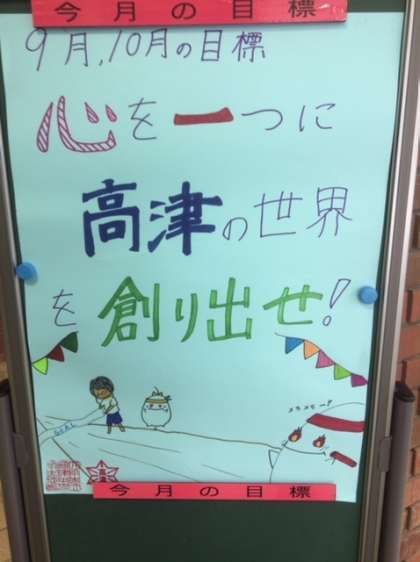 今月の目標
9月,10月の目標
心を一つに
高津の世界
を創り出せ!
GOAL
今月の目標